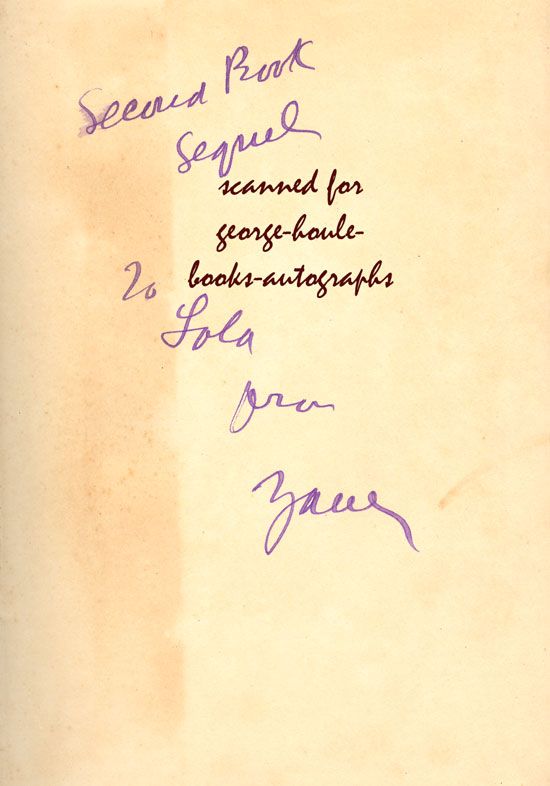 Second Book
Sequel
scanned for
george-houle-
books-autographs
To
Lola
from
Zane